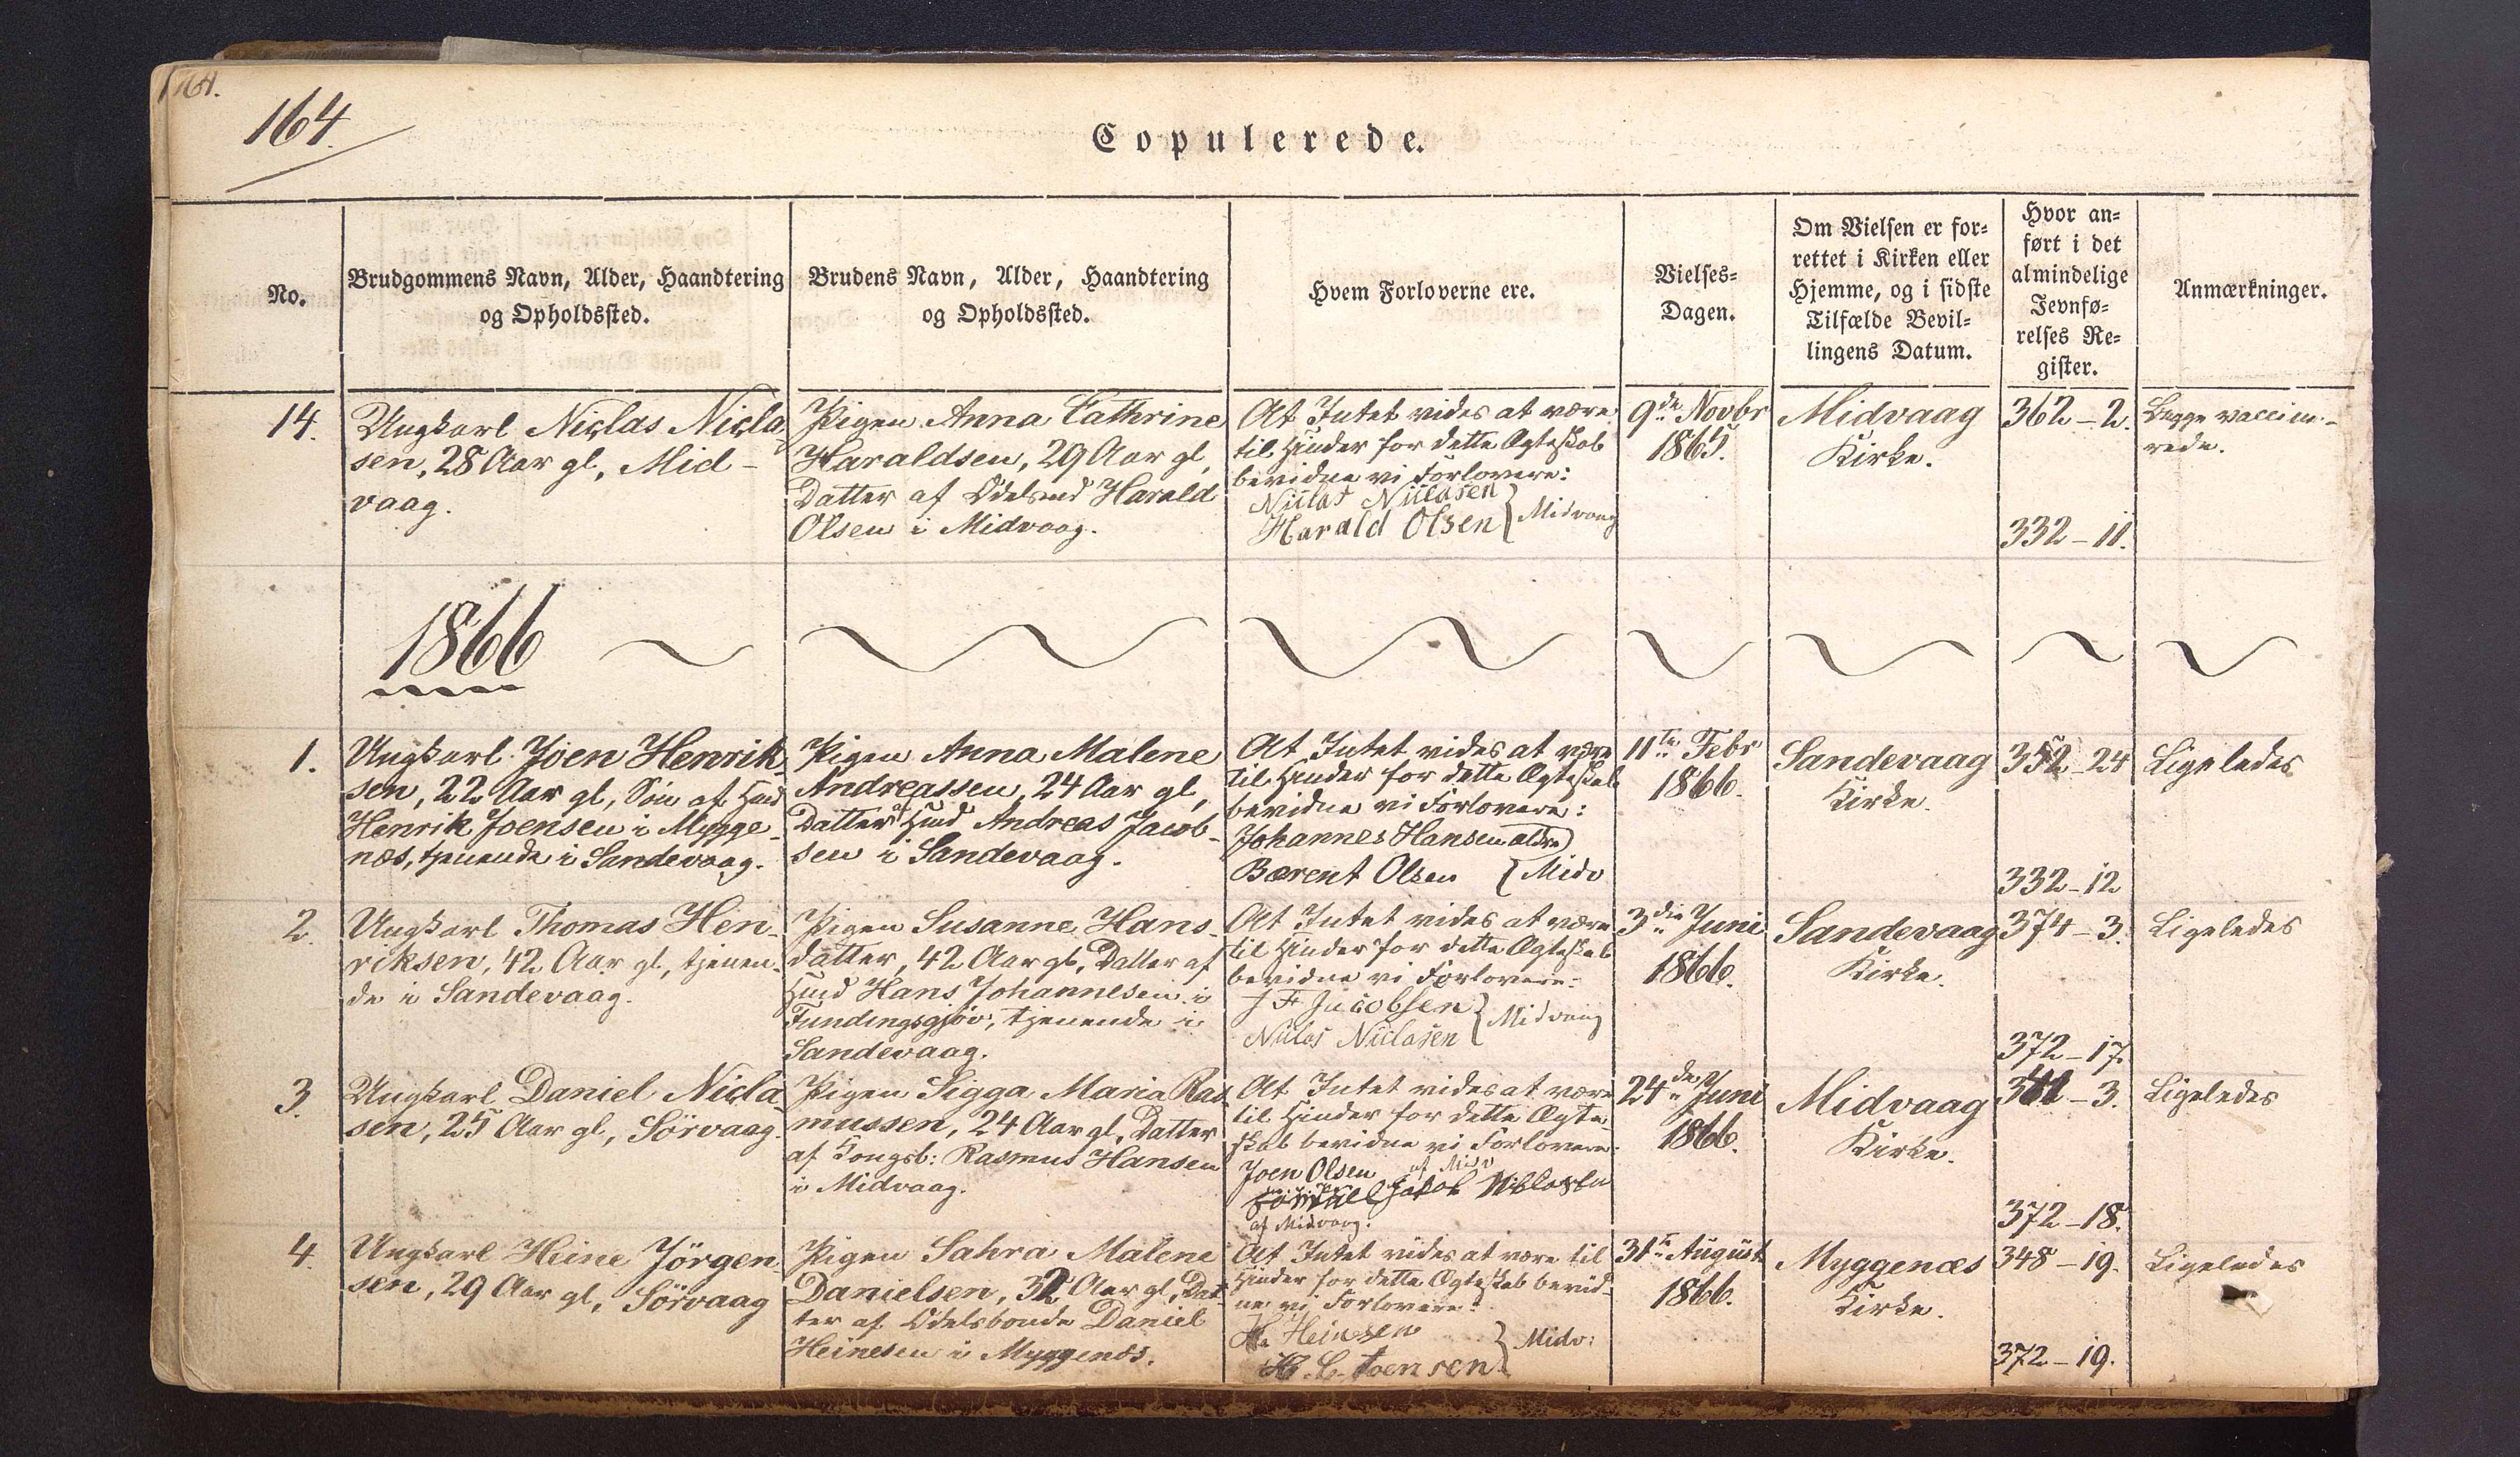 164.
164.
Copulerede.
No.
Brudgommens Navn, Alder, Haandtering
og Opholdssted.
Brudens Navn, Alder, Haandtering
og Opholdssted.
Hvem Forloverne ere.
Vielses-
Dagen.
Om Vielsen er for-
rettet i Kirken eller
Hjemme, og i sidste
Tilfælde Bevil-
lingens Datum.
Hvor an-
ført i det
almindelige
Jevnfø-
relses Re-
gister.
Anmærkninger.
14.
Ungkarl Niclas Nicla
sen, 28 Aar gl, Mid-
vaag.
Pigen Anna Cathrine
Haraldsen, 29 Aar gl,
Datter af Odelsmd Harald
Olsen i Midvaag.
At Intet vides at være
til Hinder for dette Ægteskab
bevidne vi Forlovere:
Niclas Niclasen
Harald Olsen } Midvaag
9de Novbr
1865.
Midvaag
Kirke.
362-2.
332-11.
Begge vaccine-
rede.
1866
1.
Ungkarl Joen Henrik-
sen, 22 Aar gl, Søn af Huusmd
Henrik Joensen i Mygge-
næs, tjenende i Sandevaag.
Pigen Anna Malene
Andreassen, 24 Aar gl,
Datter af Huusmd Andreas Jacob-
sen i Sandevaag.
At Intet vides at være
til Hinder for dette Ægteskab
bevidne vi Forlovere:
Johannes Hansen ældre
Bærent Olsen { Midv
11te Febr
1866.
Sandevaag
Kirke.
352-24
332-12
Ligeledes
2.
Ungkarl Thomas Hen-
riksen, 42 Aar gl, tjenen-
de i Sandevaag.
Pigen Susanne Hans-
datter, 42 Aar gl, Datter af
Huusmd Hans Johannesen i
Fundingsgjov, tjenende i
Sandevaag.
At Intet vides at være
til Hinder for dette Ægteskab
bevidne vi Forlovere:
J F Jacobsen
Niclas Niclasen } Midvaag
3die Juni
1866.
Sandevaag
Kirke.
374-3.
372-17.
Ligeledes
3.
Ungkarl Daniel Nicla-
sen, 25 Aar gl, Sörvaag.
Pigen Sigga Maria Ras-
mussen, 24 Aar gl, Datter
af Kongsb: Rasmus Hansen
i Midvaag.
At Intet vides at være
til Hinder for dette Ægte-
skab bevidne vi Forlovere:
Joen Olsen af Midv
Jakob Niklasen
af Midvaag.
24de Juni
1866.
Midvaag
Kirke.
-3.
372-18.
Ligeledes
4.
Ungkarl Heine Jörgen-
sen, 29 Aar gl, Sörvaag
Pigen Sahra Malene
Danielsen, 32 Aar gl, Dat-
ter af Odelsbonde Daniel
Heinesen i Myggenæs.
At Intet vides at være til
Hinder for dette Ægteskab bevid-
ne vi Forlovere:
Heinesen
H. C. Joensen } Midv:
31te August
1866.
Myggenæs
Kirke.
348-19.
372-19.
Ligeledes